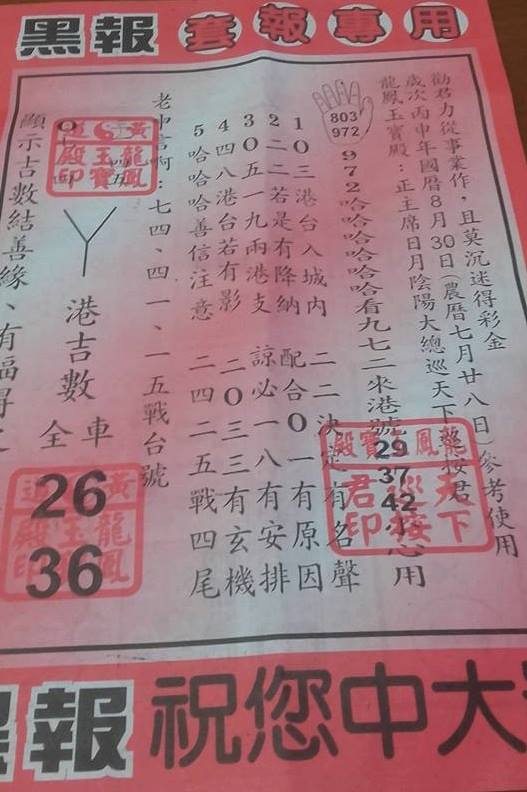 黑報 套報專用
勸君力從事業作，且莫沉迷得彩金
歲次丙申年國曆8月30日(農曆七月廿八日)參考使用
龍鳳玉寶殿：正主席日月陰陽大總巡天下
803
972
972哈哈哈哈哈看九七二來港號
29
37
42
小心用
103港台入城內 二二決定有名聲
2二二若是有降納 配合0一有原因
305一九兩港支 諒必一八有安排
4四八港台若有影 二0三三有玄機
5哈哈哈善信注意 二四二五戰四尾
老中言啊：七四、四一、一五戰台號
黃龍鳳玉寶殿印
港吉數 全車
26
36
顯示吉數結善緣、有福得
龍鳳寶殿
天下巡按君印
黑報 祝您中大